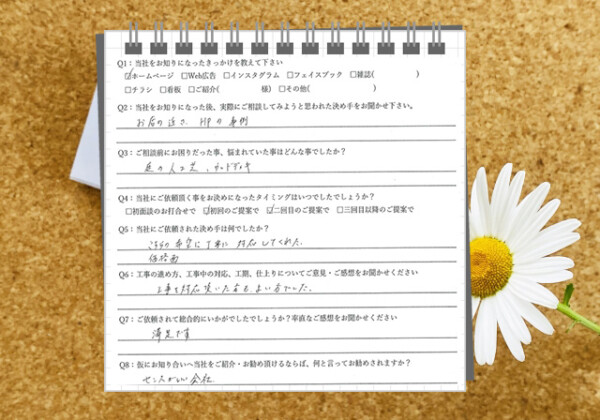 Q1：当社をお知りになったきっかけを教えて下さい
☑ホームページ □Web広告 □インスタグラム □フェイスブック □雑誌( )
□チラシ □看板 □ご紹介( 様) □その他( )
Q2：当社をお知りになった後、実際にご相談してみようと思われた決め手をお聞かせ下さい。
お店の近さ、HPの事例
Q3：ご相談前にお困りだった事、悩まれていた事はどんな事でしたか？
庭の人工芝、ウッドデッキ
Q4：当社にご依頼頂く事をお決めになったタイミングはいつでしたでしょうか？
□初面談のお打合せで ☑初回のご提案で ☑二回目のご提案で □三回目以降のご提案で
Q5：当社にご依頼された決め手は何でしたか？
こちらの希望に丁寧に対応してくれた。
価格面
Q6：工事の進め方、工事中の対応、工期、仕上りについてご意見・ご感想をお聞かせください
工事も対応頂いた方もよい方でした。
Q7：ご依頼されて総合的にいかがでしたでしょうか？率直なご感想をお聞かせください
満足です
Q8：仮にお知り合いへ当社をご紹介・お勧め頂けるならば、何と言ってお勧めされますか？
センスがいい会社